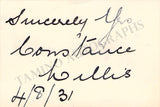 Sincerely Yrs
Constance
Willis
4/8/31
TAMINO AUTOGRAPHS